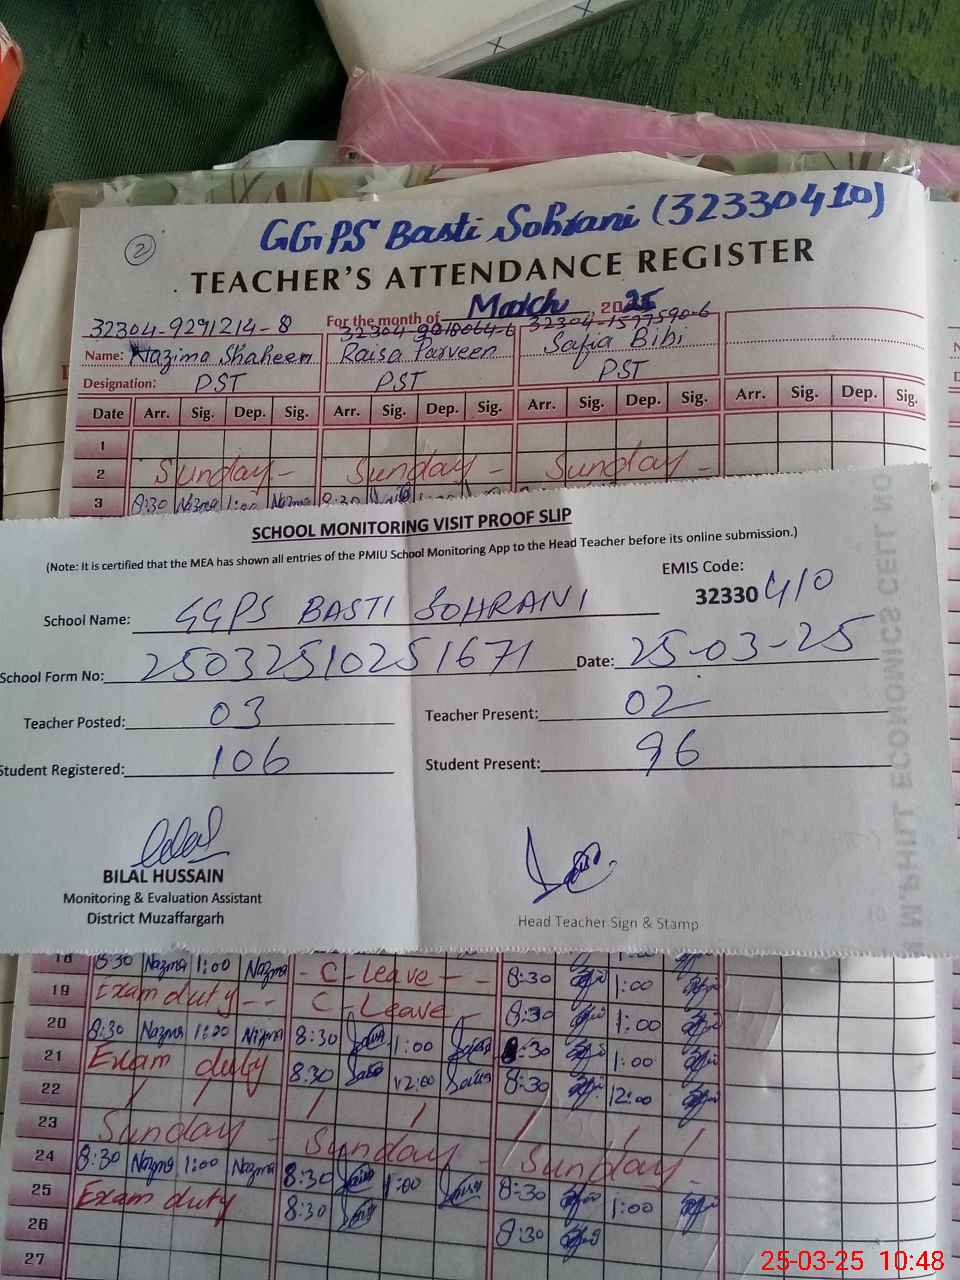 2
GGPS Basti Sohrani (32330410)
TEACHER'S ATTENDANCE REGISTER
For the month of March, 2025
32304-9291214-8 32304-9018064-6 32304-1577590-6
Name: Nazima Shaheen Raisa Parveen Safia Bibi
Designation: PST PST PST
Date Arr. Sig. Dep. Sig. Arr. Sig. Dep. Sig. Arr. Sig. Dep. Sig. Arr. Sig. Dep. Sig.
1
2 Sunday - Sunday - Sunday -
3 8:30 Nazma 1:00 Nazma 8:30
SCHOOL MONITORING VISIT PROOF SLIP
(Note: It is certified that the MEA has shown all entries of the PMIU School Monitoring App to the Head Teacher before its online submission.)
EMIS Code:
School Name: GGPS BASTI SOHRANI 32330410
School Form No: 25032510251671 Date: 25-03-25
Teacher Posted: 03 Teacher Present: 02
Student Registered: 106 Student Present: 96
BILAL HUSSAIN
Monitoring & Evaluation Assistant
District Muzaffargarh
Head Teacher Sign & Stamp
M.PHILL ECONOMICS CELL NO
18 8:30 Nazma 1:00 Nazma - C - Leave - - 8:30 1:00
19 Exam duty - - C - Leave - 8:30 1:00
20 8:30 Nazma 1:00 Nazma 8:30 1:00 8:30 1:00
21 Exam duty 8:30 12:00 8:30 12:00
22
23 Sunday - Sunday - Sunday -
24 8:30 Nazma 1:00 Nazma 8:30 1:00 8:30 1:00
25 Exam duty 8:30 8:30
26
27
25-03-25 10:48